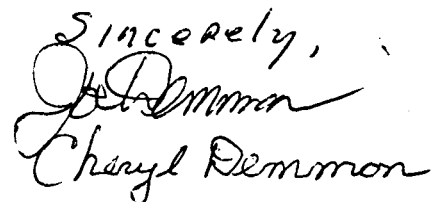 Sincerely,
Joe Demmon
Cheryl Demmon